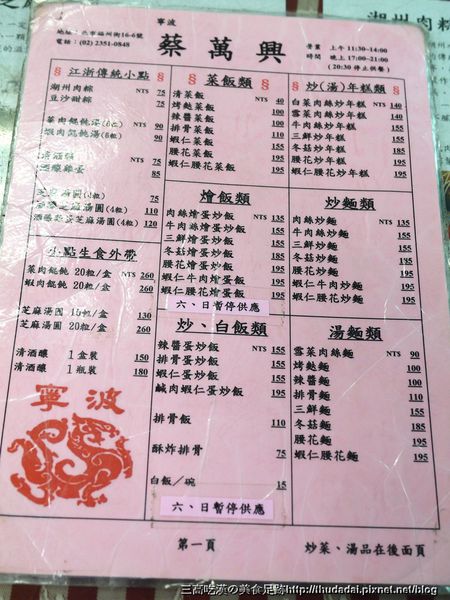 寧波
蔡萬興
地址：北市福州街16-6號
電話：(02) 2351-0848
營業時間
上午 11:30~14:00
晚上 17:00~21:00
(20:30 停止供餐)
§ 江浙傳統小點 §
湖州肉粽 NT$ 75
豆沙甜粽 75
菜肉餛飩湯(8粒) NT$ 90
蝦肉餛飩湯(8粒) 90
清酒釀 NT$ 75
酒釀雞蛋 85
芝麻湯圓(4粒) 75
酒釀芝麻湯圓(4粒) 110
酒釀芝麻湯圓(4粒) 120
小點生食外帶
菜肉餛飩 20粒/盒 NT$ 260
蝦肉餛飩 20粒/盒 260
芝麻湯圓 10粒/盒 130
芝麻湯圓 20粒/盒 260
清酒釀 1盒裝 150
清酒釀 1瓶裝 180
寧波
§ 菜飯類 §
清菜飯 NT$
烤麩菜飯
辣醬菜飯
排骨菜飯
蝦仁菜飯 195
腰花菜飯 195
蝦仁腰花菜飯 195
燴飯類
肉絲燴蛋炒飯 NT$ 135
牛肉絲燴蛋炒飯 155
三鮮燴蛋炒飯 155
冬菇燴蛋炒飯 195
腰花燴蛋炒飯 195
蝦仁燴蛋炒飯 195
蝦仁腰花燴蛋炒飯 195
六、日暫停供應
炒、白飯類
辣醬蛋炒飯 NT$ 155
排骨蛋炒飯 155
蝦仁蛋炒飯 155
鹹肉蝦仁蛋炒飯 195
排骨飯 110
酥炸排骨 75
白飯/碗 15
六、日暫停供應
§ 炒(湯)年糕類 §
白菜肉絲炒年糕 NT$ 140
雪菜肉絲炒年糕 140
牛肉絲炒年糕 155
三鮮炒年糕 155
冬菇炒年糕 195
腰花炒年糕 195
蝦仁腰花炒年糕 195
炒麵類
肉絲炒麵 NT$ 135
牛肉絲炒麵 155
三鮮炒麵 155
冬菇炒麵 195
腰花炒麵 195
蝦仁炒麵 195
蝦仁腰花炒麵 195
湯麵類
雪菜肉絲麵 NT$ 90
烤麩麵 155
辣醬麵 155
排骨麵 110
三鮮麵 155
冬菇麵 195
腰花麵 195
蝦仁腰花麵 195
第一頁
炒菜、湯品在後面頁
三高吃漢の美食足跡http://thudadai.pixnet.net/blog